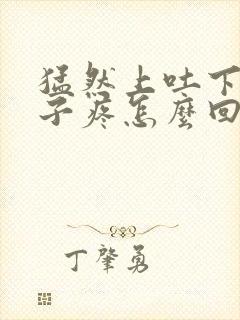 猛然上吐下
子疼怎麼回
丁肇勇